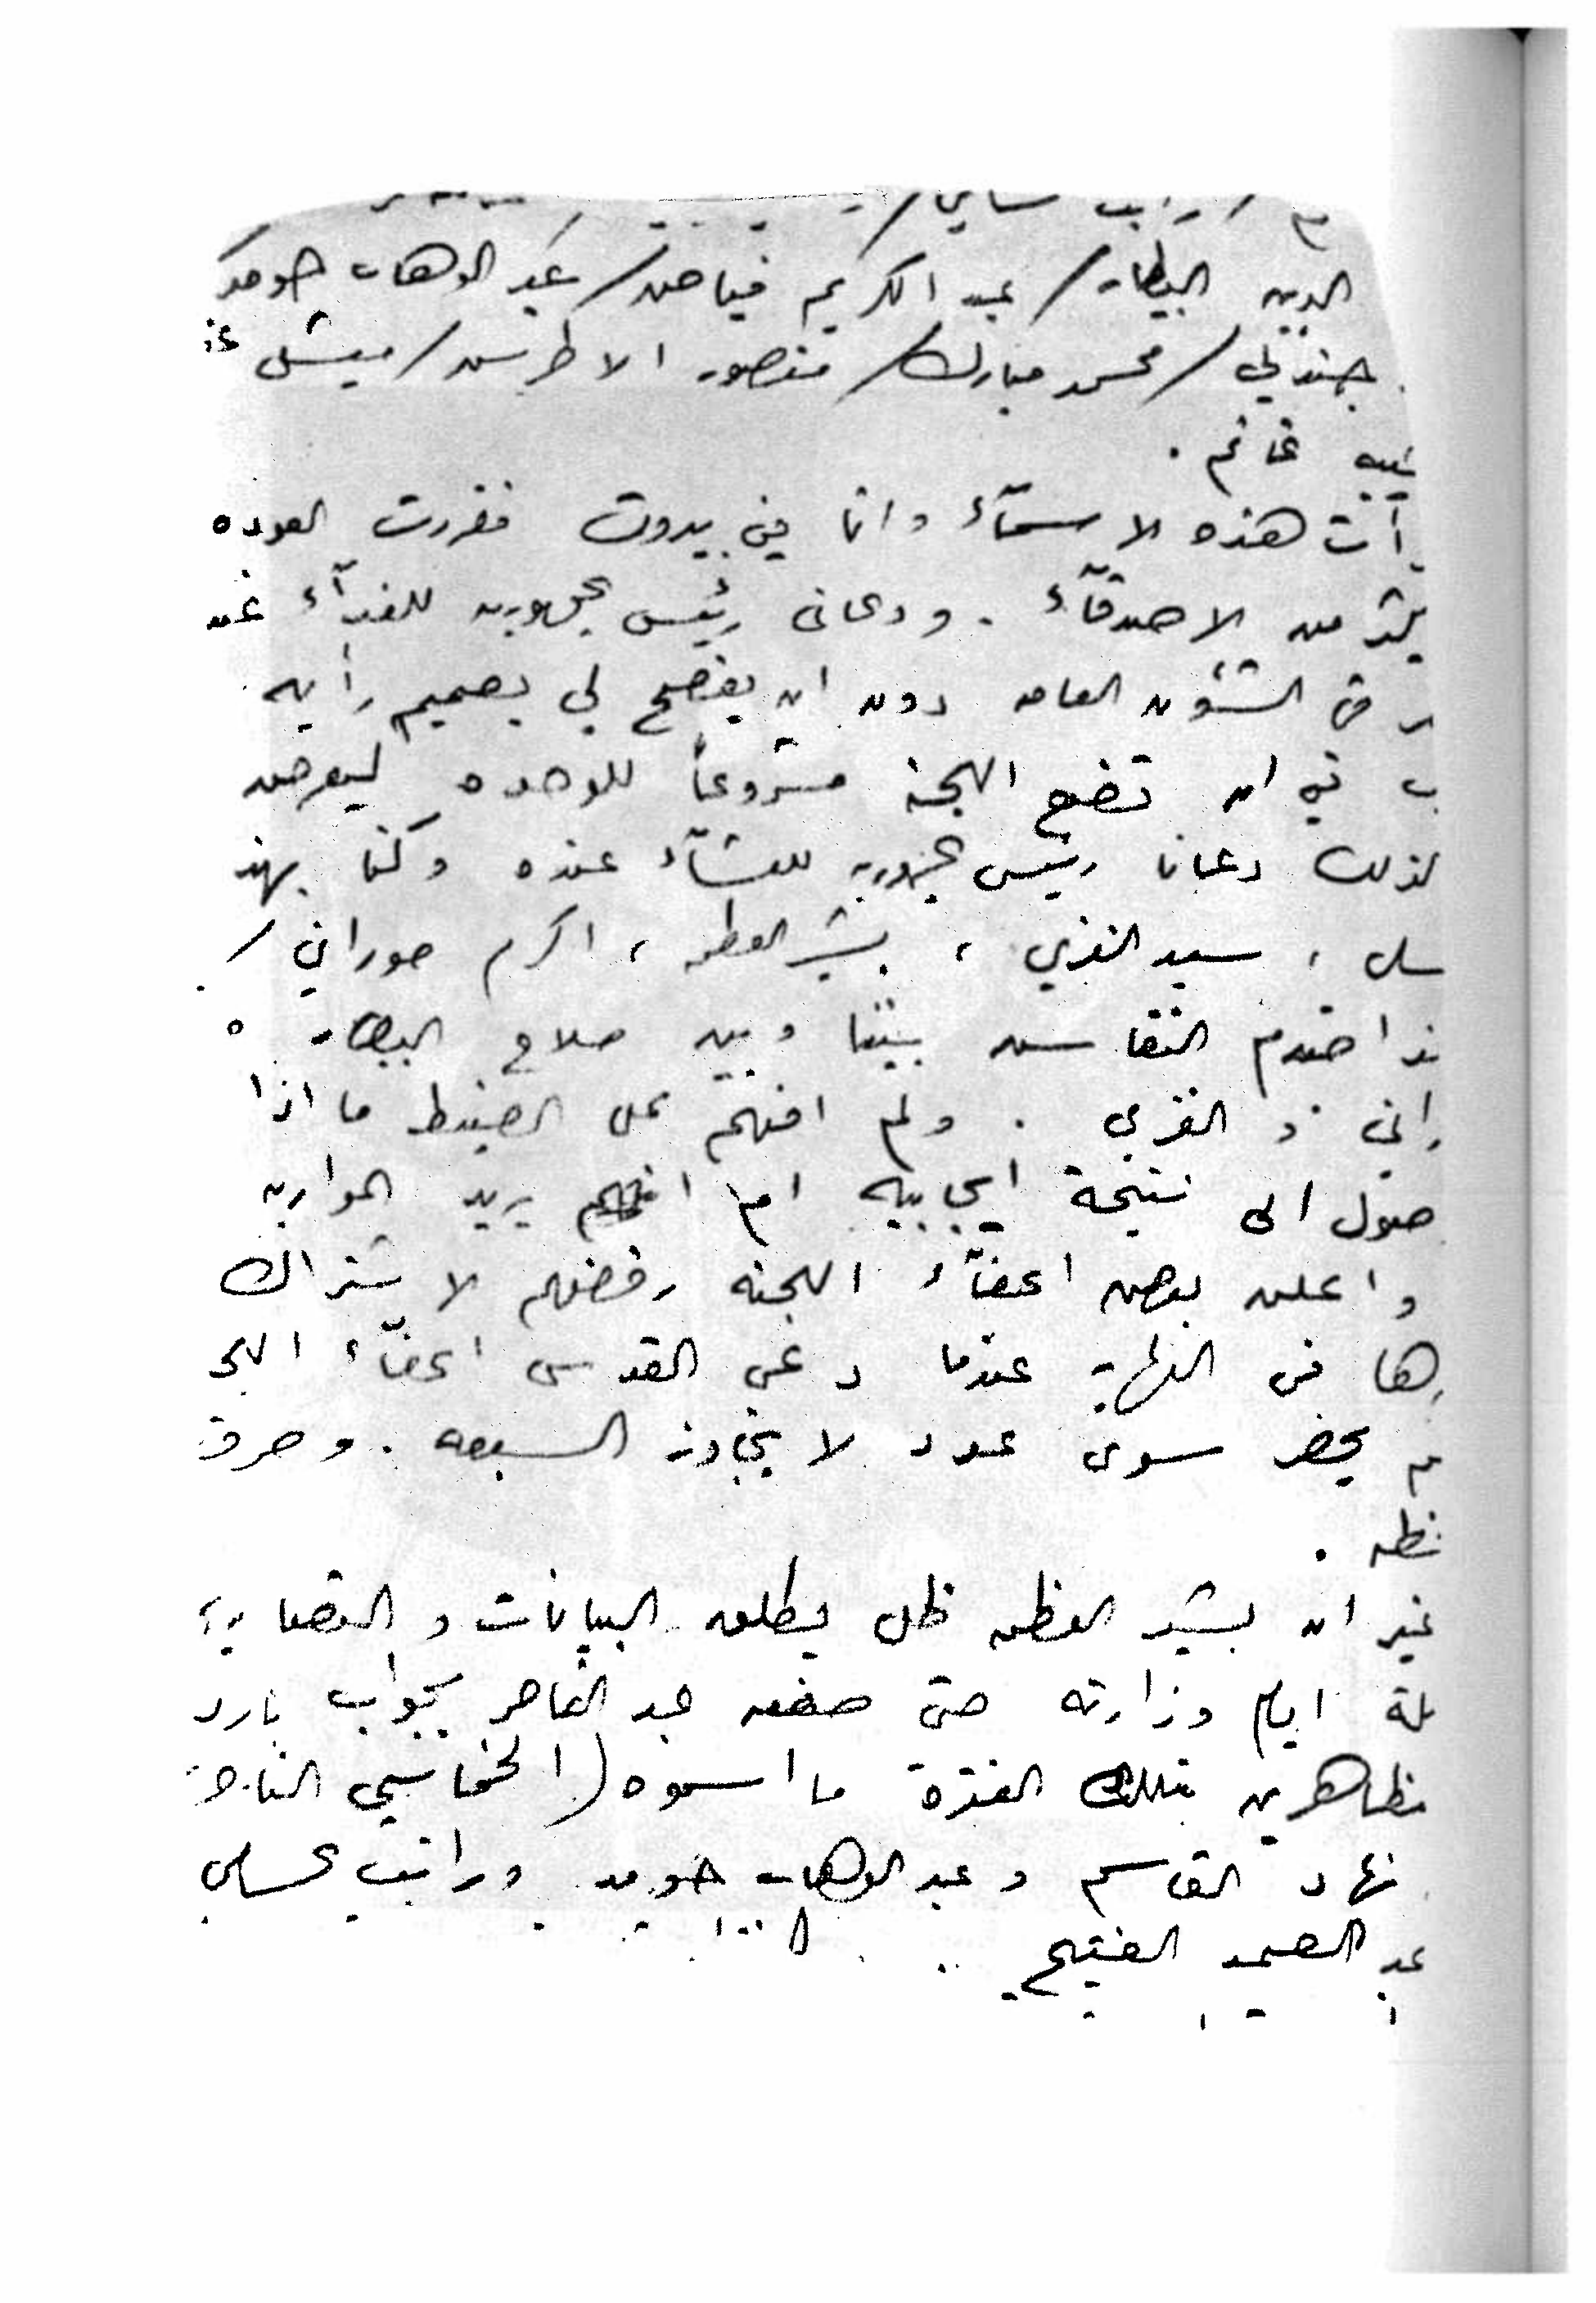 الدين البيطار / عبد الكريم فياض / عبد الوهاب حومد
جندلي / محمد مبارك / منصور الاطرش / ميشل
غانم .
هذه الاسمآء وانا في بيروت فقررت العوده
من الاصدقآء . ودعانى رئيس جمهوريه للغدآء
فى الشئون العامه دون ان يفصح لي بصميم رأيه
في ان تضع اللجنة مشروعاً للوحده ليعرض
لذلك دعانا رئيس جمهوريه للعشآء عنده وكنا بهذ
سل ، سعيد الغزي ، بشير العظمه ، اكرم حوراني /
احتدم النقاش بيننا وبين صلاح البيطار
راني و الغزي . ولم افهم على الضبط ما اذا
صول الى نتيجة ايجابيه ام انهم يريد المواربه
واعلن بعض اعضآء اللجنه رفضهم لاشتراك
ها فى النهاية عندما دعى القدسى اعضآء اللج
م يحضر سوى عدد لا يتجاوز السبعه . وصرف
غير ان بشير العظمه ظل يطلق البيانات و التصاريح
لة ايام وزارته حتى صفعه عبد الناصر بجواب بارد
تظاهرين بتلك الفترة ما اسموه ( الخماسي
نهاد القاسم و عبد الوهاب حومد وراتب حسامي
عبد الصمد الفتيح ..